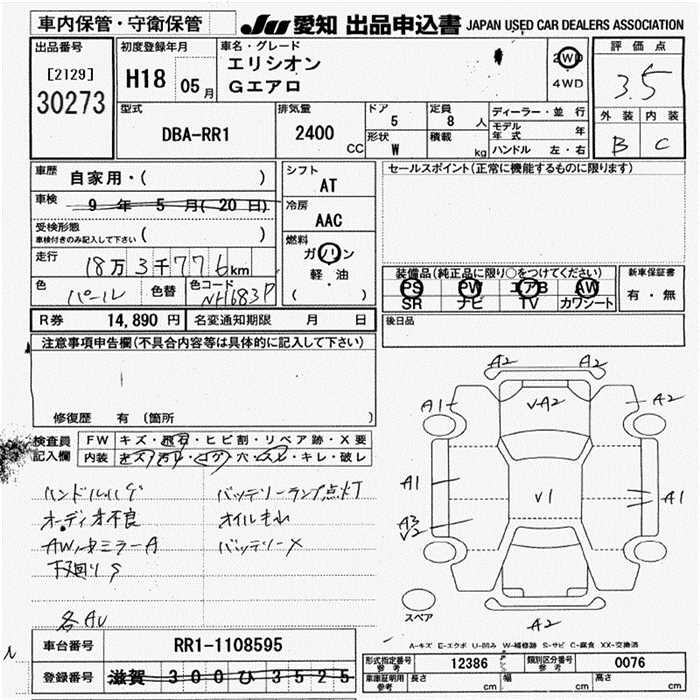 車内保管・守衛保管
JU 愛知 出品申込書 JAPAN USED CAR DEALERS ASSOCIATION
出品番号
[2129]
30273
初度登録年月
H18 05月
車名・グレード
エリシオン
Gエアロ
2WD
4WD
評価点
3.5
外装 内装
B C
型式
DBA-RR1
排気量
2400 CC
ドア
5
定員
8 人
形状
W
積載
kg
ディーラー・並行
モデル年式 年
ハンドル 左・右
車歴
自家用・( )
車検
9年5月(20日)
受検形態
車検付きのみ記入して下さい ( )
走行
18万3千776km
色
パール
色替
色コード
NH683P
シフト
AT
冷房
AAC
燃料
ガソリン
軽・油
( )
セールスポイント(正常に機能するものに限ります)
装備品(純正品に限り○をつけてください)
PS PW エアB AW
SR ナビ TV カワシート
新車保証書
有・無
後日品
R券 14,890円 名変通知期限 月 日
注意事項申告欄(不具合内容等は具体的に記入して下さい)
修復歴 有 (箇所 )
検査員記入欄
FW キズ・飛石・ヒビ割・リペア跡・X要
内装 キズ・汚れ・コゲ・穴・スレ・キレ・破レ
ハンドルハゲ
バッテリーランプ点灯
オーディオ不良
オイルもれ
バッテリーX
下廻りS
A2 A2
A1 V・A2 A2
A1 V1 A1
A3
V2
A2
スペア
A-キズ E-エクボ U-凹み W-補修跡 S-サビ C-腐食 XX-交換済
車台番号 RR1-1108595
登録番号 滋賀 300 ひ 3525
型式指定番号 参考 12386 類別区分番号 参考 0076
車庫証明用 参考 長さ cm 幅 cm 高さ cm